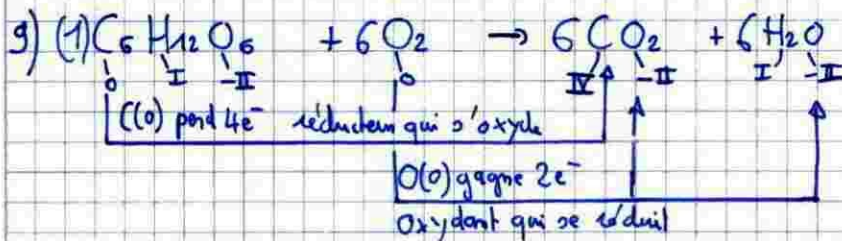 9) (1) C₆H₁₂O₆ + 6O₂ → 6CO₂ + 6H₂O
0 I -II 0 IV -II I -II
C(0) perd 4e⁻ réducteur qui s'oxyde
O(0) gagne 2e⁻
Oxydant qui se réduit